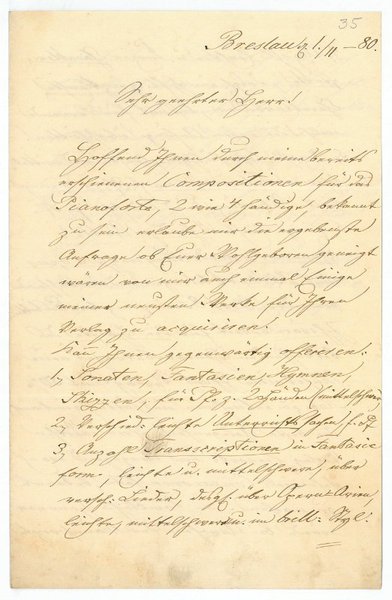 35
Breslau, 1./11 - 80.
Sehr geehrter Herr!
Hoffend Ihnen durch meine bereits
erschienenen Compositionen für das
Pianoforte, 2 wie 4 händige, bekannt
zu sein erlaube mir die ergebenste
Anfrage ob Euer Wohlgeboren geneigt
wären von mir auch einmal Einige
meiner neusten Werke für Ihren
Verlag zu acquiriren.
Kann Ihnen gegenwärtig offeriren:
1, Sonaten, Fantasien, Hymnen,
Skizzen, für Pf. z. 2 Händen (mittelschwer
2, Verschied: leichte Unterrichtssachen f.
3, Anzahl Transcriptionen in Fantasie
form, leichte u. mittelschwere, über
versch: Lieder, desgl. über Opern-Arien,
leichte, mittelschwer u. im brill: Styl.